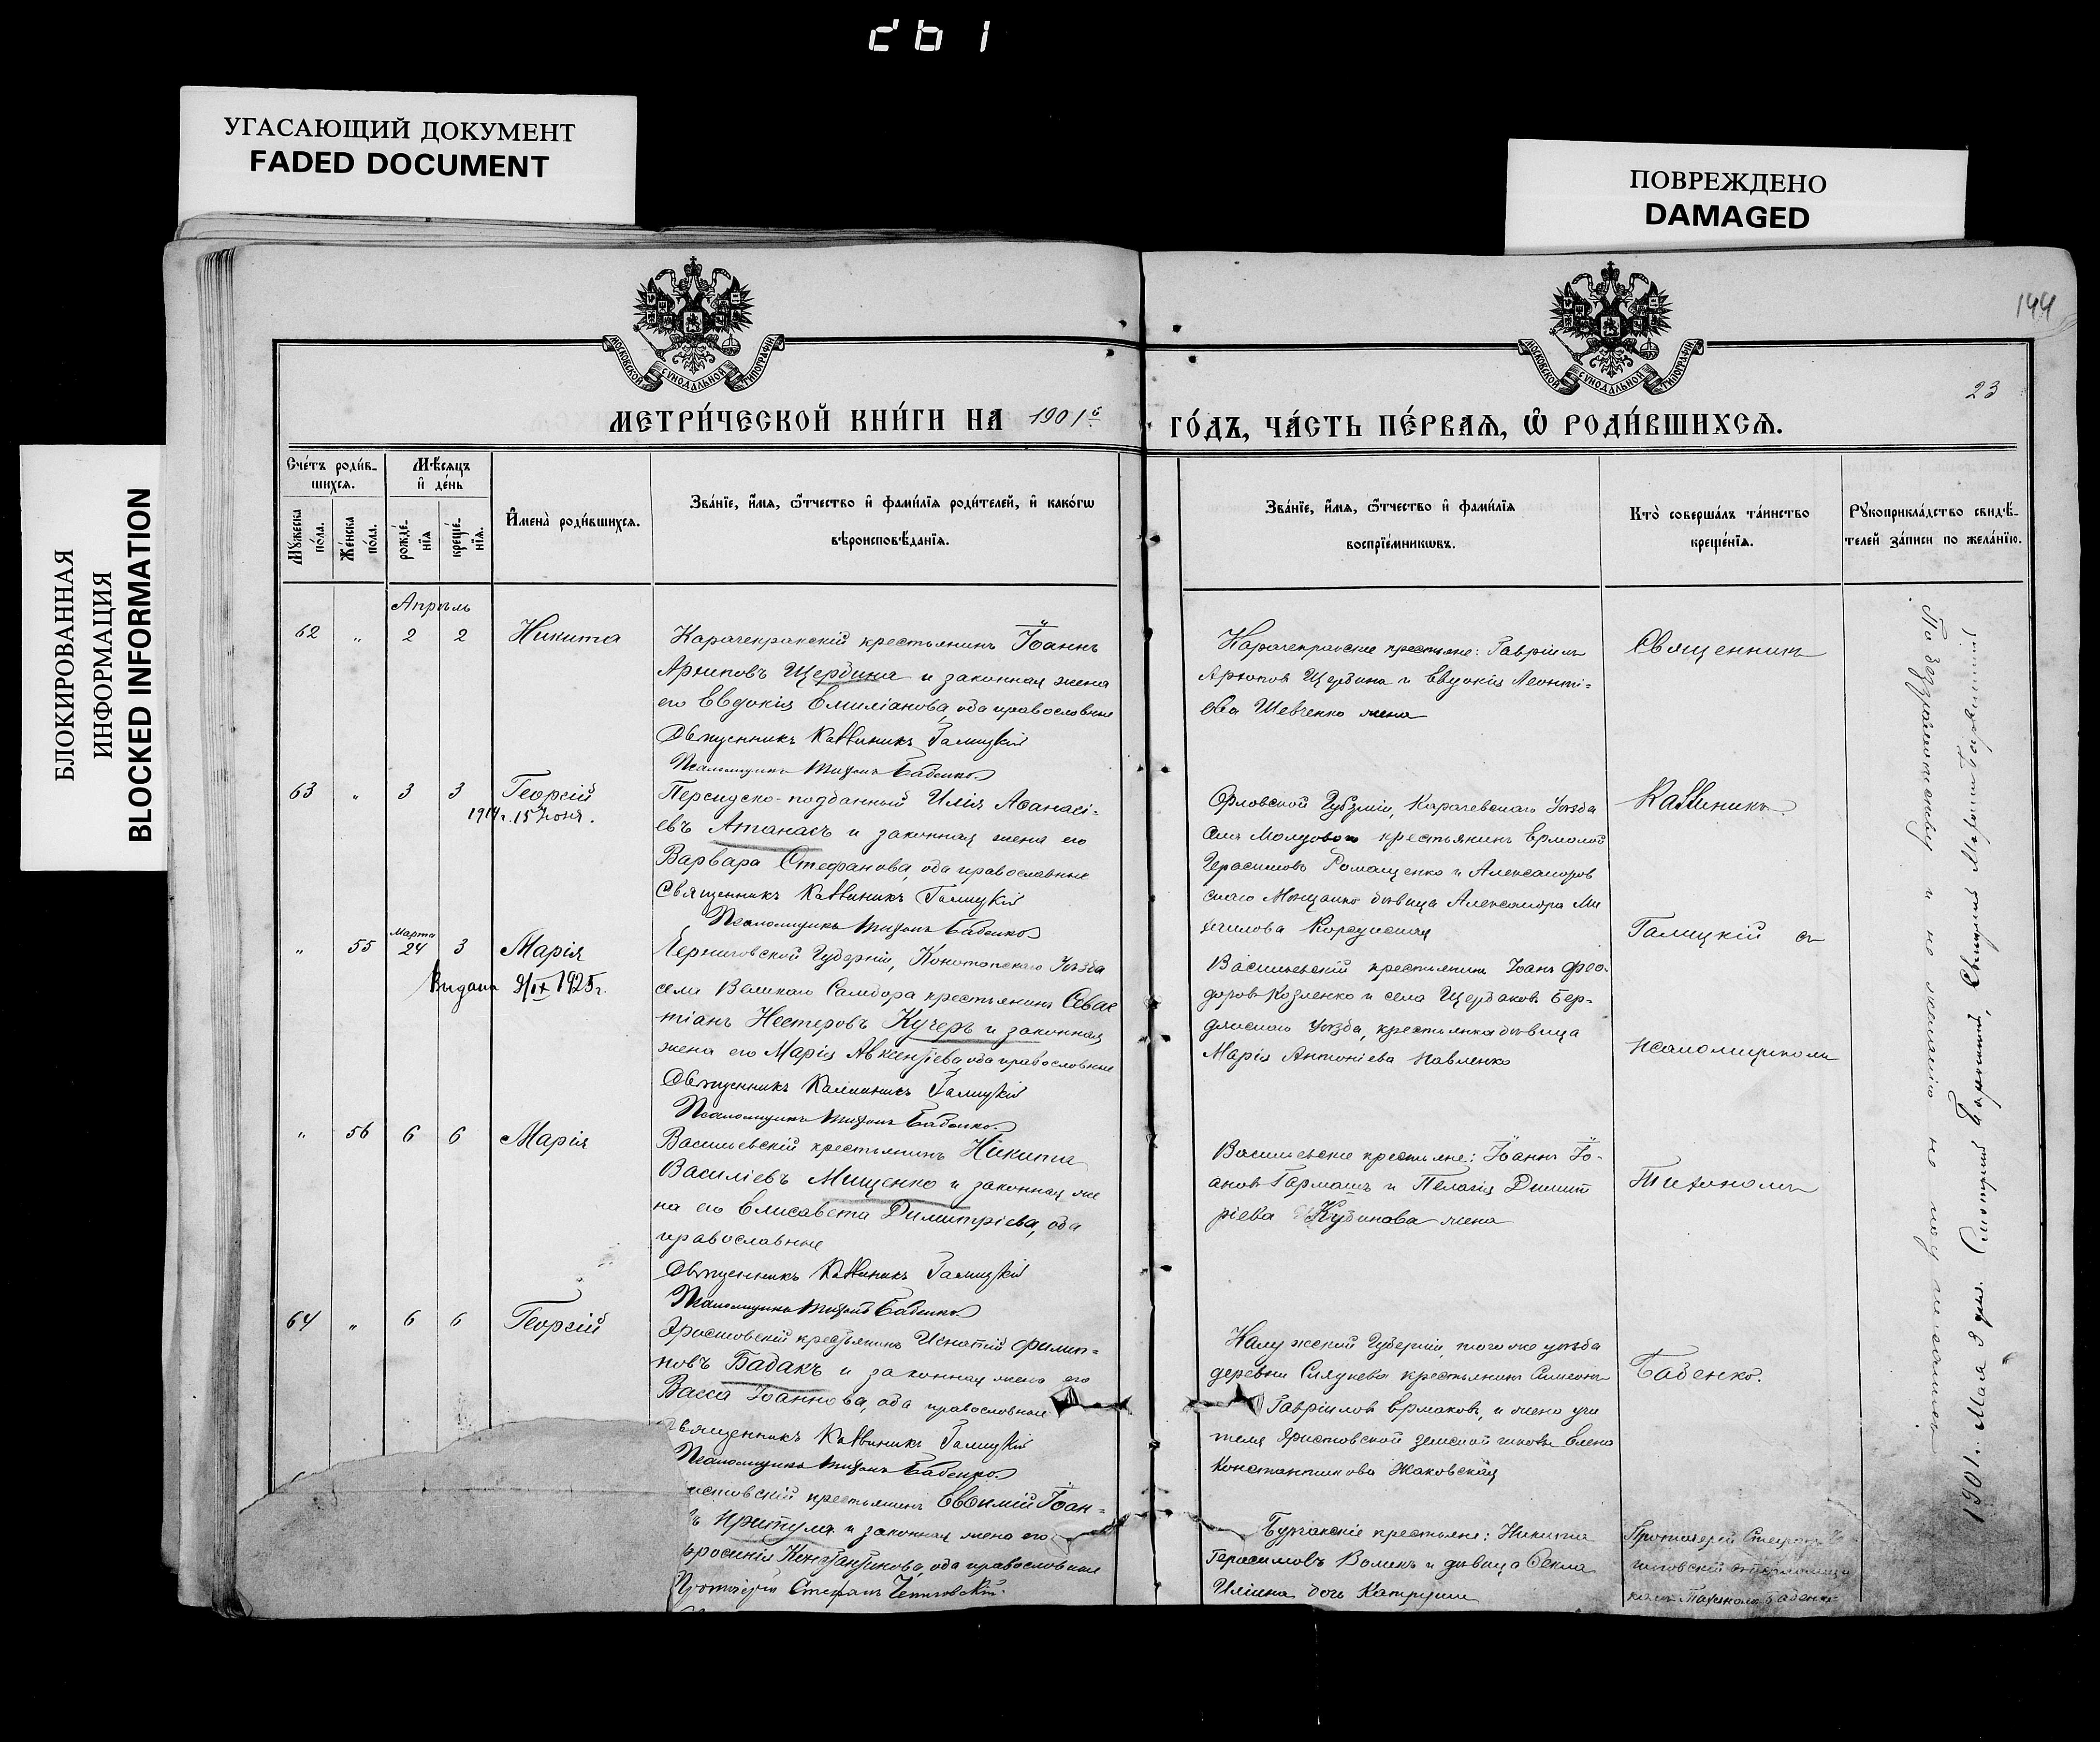 261
УГАСАЮЩИЙ ДОКУМЕНТ
FADED DOCUMENT
ПОВРЕЖДЕНО
DAMAGED
БЛОКИРОВАННАЯ
ИНФОРМАЦИЯ
BLOCKED INFORMATION
МОСКОВСКОЙ СУНОДАЛЬНОЙ ТИПОГРАФІИ
МОСКОВСКОЙ СУНОДАЛЬНОЙ ТИПОГРАФІИ
144
23
МЕТРИ́ЧЕСКОЙ КНИ́ГИ НА 1901й
ГО́ДЪ, ЧА́СТЬ ПЕ́РВАѦ, Ѡ РОДИ́ВШИХСѦ.
Сче́тъ роди́в-
шихсѧ.
Мꙋ́жеска
по́ла.
Же́нска
по́ла.
Мѣ́сѧцъ
и҆ де́нь
рожде́-
нїѧ
креще́-
нїѧ.
И҆мена̀ роди́вшихсѧ.
Зва́нїе, и҆́мѧ, ѻ҆́тчество и҆ фами́лїѧ роди́телей, и҆ како́гѡ
вѣроисповѣ́данїѧ.
Зва́нїе, и҆́мѧ, ѻ҆́тчество и҆ фами́лїѧ
воспрїе́мникѡвъ.
Кто̀ соверша́лъ та́инство
креще́нїѧ.
Рꙋкоприкла́дство свидѣ́-
телей за́писи по жела́нїю.
Апрѣль
62 " 2 2 Никита
Карачекракскій крестьянинъ Іоаннъ
Архиповъ Щербина и законная жена
его Евдокія Емиліанова, оба православные
Священникъ Каллиникъ Галицкій
Псаломщикъ Тихонъ Бабенко
Карачекракские крестьяне: Гавріилъ
Архипов Щербина и Евдокія Леонті-
ева Шевченко жена
Священник
63 " 3 3 Георгій
1914 г. 15 Іюня.
Персидско-подданный Илія Аѳанасі-
евъ Атанасъ и законная жена его
Варвара Стефанова, оба православные
Священникъ Каллиникъ Галицкій
Псаломщикъ Тихонъ Бабенко
Орловской Губерніи, Карачевскаго Уѣзда
крестьянин Ермолай
Герасимовъ Ромащенко и Александров
дѣвица Александра Ми
хаилова
Каллиникъ
Галицкій съ
" 55 Марта 24 3 Марія
Выдана 9/IX 1925 г.
Черниговской Губерніи, Конотопскаго Уѣзда
села Великаго Самбора крестьянинъ Севас
тіанъ Нестеровъ Кучеръ и законная
жена его Марія Авксентіева, оба православные
Священникъ Каллиникъ Галицкій
Псаломщикъ Тихонъ Бабенко
Васильевскій крестьянин Іоанъ Ѳео-
доров Козленко и села Щербаков Бер-
дянскаго Уѣзда, крестьянка дѣвица
Марія Антоніева Павленко
псаломщиком
" 56 6 6 Марія
Васильевскій крестьянинъ Никита
Василіевъ Мищенко и законная же
на его Елисавета Димитріева, оба
православные
Священникъ Каллиникъ Галицкій
Псаломщикъ Тихонъ Бабенко
Васильевские крестьяне: Іоаннъ Іо-
анов Гармаш и Пелагія Димит
ріева Кубинова жена
Тихономъ
64 " 6 6 Георгій
крестьянинъ Игнатій Филип-
повъ Бабакъ и законная жена его
Васса Іоаннова, оба православные
Священникъ Каллиникъ Галицкій
Псаломщикъ Тихонъ Бабенко
Калужской Губерніи, того же уѣзда
деревни крестьянин Симеонъ
Гавріилов Ермаковъ, и жена учи
теля земской школы Елена
Константинова Жаковская
Бабенко.
крестьянинъ Евѳимій Іоан-
въ Притула и законная жена его
Константинова, оба православные
Протоіерей Стефанъ
крестьяне: Никита
Герасимовъ Волик и дѣвица Ѳекла
Иліина дочь
Протоіерей Стефанъ
Тихоном Бабенко
1901 г. Мая 9 дня. Смотрѣлъ